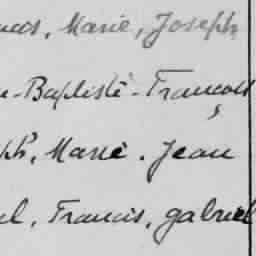 Marie, Joseph
Baptiste - François
Marie. Jean
Francis, gabriel